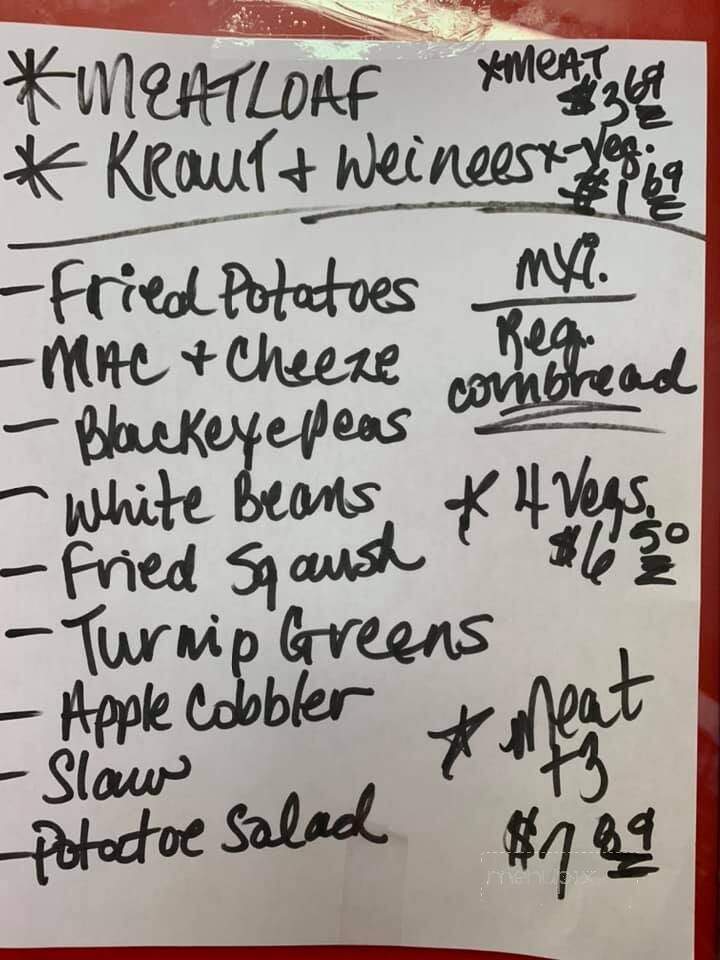 * MEATLOAF
xMEAT
$3 69
* KRAUT + Weinees
x-Veg.
$1 69
- Fried Potatoes
- MAC + Cheeze
- Blackeyepeas
- White Beans
- Fried Sqaush
- Turnip Greens
- Apple Cobbler
- Slaw
- Potatoe Salad
mxi.
Reg.
cornbread
* 4 Vegs.
$6 50
* Meat
+3
$7 89
menupix